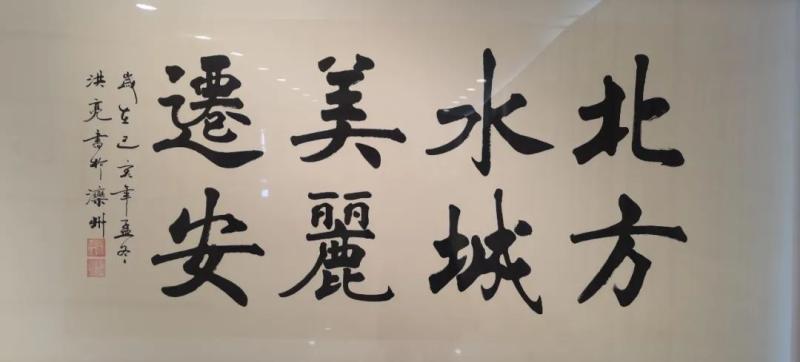 北方
水城
美麗
遷安
歲在己亥年孟冬
洪亮書於灤州